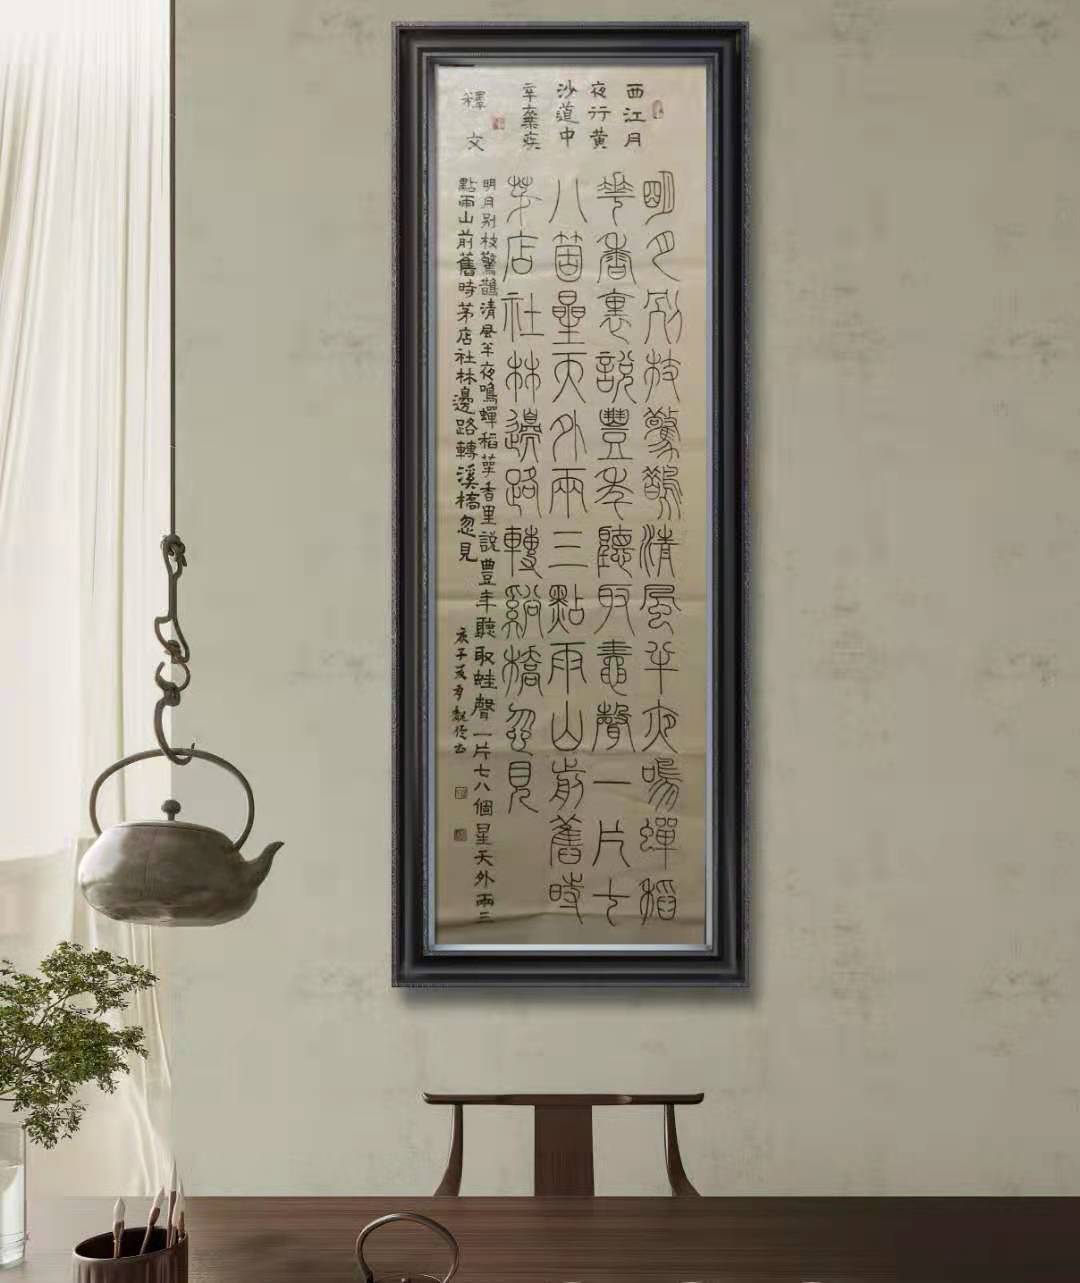 西江月
夜行黄
沙道中
辛棄疾
明月别枝驚鵲清風半夜鳴蟬稻
華香裏說豐年聽取鼃聲一片七
八箇星天外兩三點雨山前舊時
茅店社林邊路轉谿橋忽見
釋文
明月别枝驚鵲清風半夜鳴蟬稻華香里説豊年聽取蛙聲一片七八個星天外兩三
點雨山前舊時茅店社林邊路轉溪橋忽見
庚子